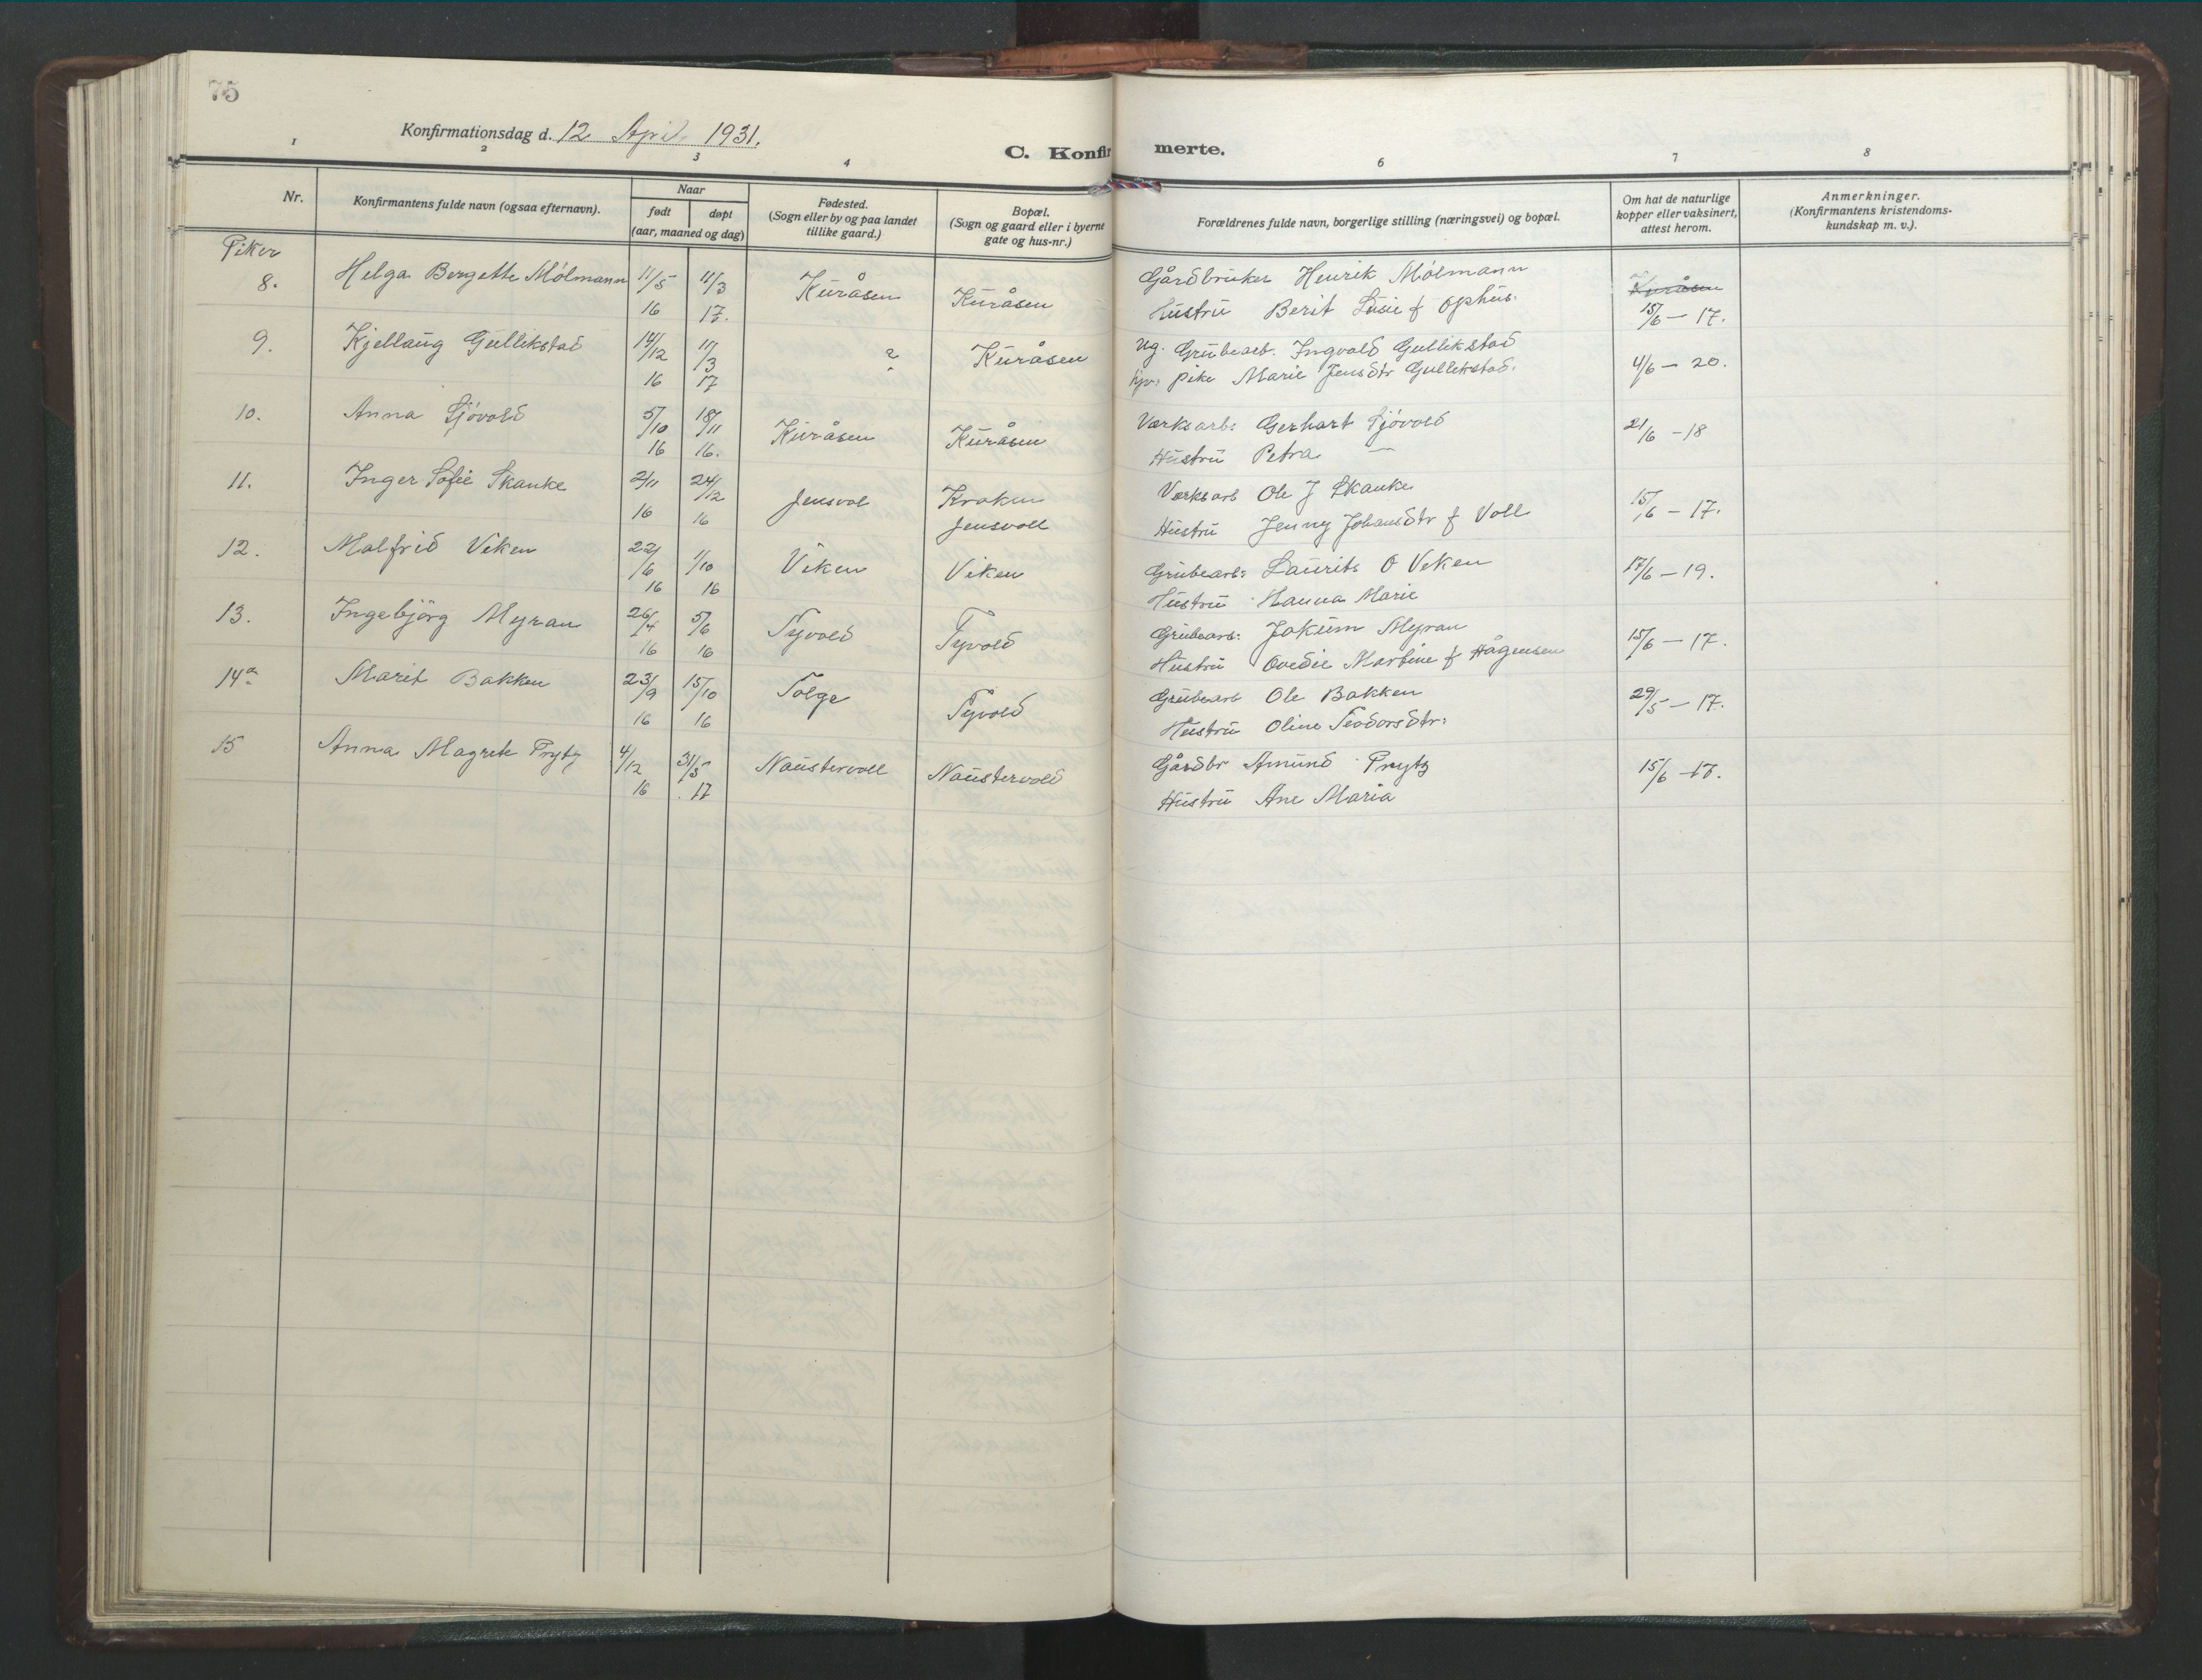 75
Konfirmationsdag d. 12 April 1931.
C. Konfirmerte.
1 2 3 4 6 7 8
Nr.
Konfirmantens fulde navn (ogsaa efternavn).
Naar
født døpt
(aar, maaned og dag)
Fødested.
(Sogn eller by og paa landet
tillike gaard.)
Bopæl.
(Sogn og gaard eller i byerne
gate og hus-nr.)
Forældrenes fulde navn, borgerlige stilling (næringsvei) og bopæl.
Om hat de naturlige
kopper eller vaksinert,
attest herom.
Anmerkninger.
(Konfirmantens kristendoms-
kundskap m. v.).
Piker
8. Helga Bergette Mölmann 11/5 11/3 Kuråsen Kuråsen Gårdbruker Henrik Mölmann Kuråsen
16 17. Hustru Berit Lusie f Ophus. 15/6 - 17.
9. Kjellaug Gullikstad 14/12 11/3 ? Kuråsen Ug. Grubearb. Ingvald Gullikstad
16 17 pike Marie Jensdtr Gullikstad. 4/6 - 20.
10. Anna Sjövold 5/10 18/11 Kuråsen Kuråsen Verksarb: Gerhart Sjövold 21/6 - 18
16 16. Hustru Petra —
11. Inger Sofie Skanke 2/11 24/12 Jensvol Kroken Verksarb Ole J Skanke 15/6 - 17.
16 16 Jensvoll Hustru Jenny Johansdtr f Voll
12. Malfrid Viken 22/6 1/10 Viken Viken Grubearb: Laurits O Viken 17/6 - 19.
16 16 Hustru Hanna Marie
13. Ingebjörg Myran 26/4 5/6 Tyvold Tyvold Grubearb: Jakum Myran 15/6 - 17.
16 16 Hustru Ovedie Martine f Hågensen
14a Marit Bakken 23/9 15/10 Tolge Tyvold Grubearb Ole Bakken 29/5 - 17.
16 16 Hustru Oline Teodorsdtr:
15 Anna Magrete Prytz 4/12 31/3 Naustervoll Naustervold Gårdbr Amund Prytz 15/6 - 17.
16 17 Hustru Ane Maria